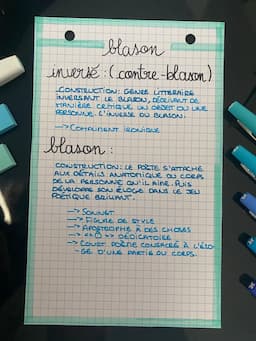 blason
inversé : (contre-blason)
CONSTRUCTION: GENRE LITTERAIRE
INVERSANT LE BLASON, DÉCRIVANT DE
MANIÈRE CRITIQUE UN OBJET OU UNE
PERSONNE. L'INVERSE DU BLASON.
--> COMPLIMENT IRONIQUE
blason :
CONSTRUCTION: LE POÈTE S'ATTACHE
AUX DÉTAILS ANATOMIQUE DU CORPS
DE LA PERSONNE QU'IL AIME. PUIS
DÉVELOPPE SON ÉLOGE DANS LE JEU
POÉTIQUE BRILLANT.
--> SONNET
--> FIGURE DE STYLE
--> APOSTROPHE À DES CHOSES
--> « Ô » => DÉDICATOIRE
--> COURT POÈME CONSACRÉ À L'ÉLO-
GE D'UNE PARTIE DU CORPS.